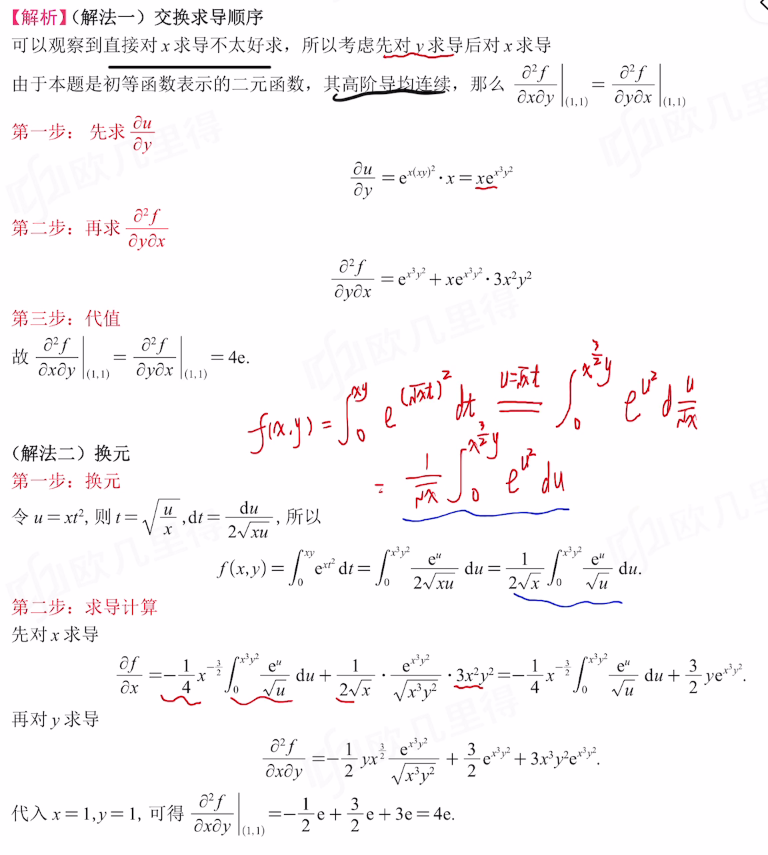 【解析】（解法一）交换求导顺序
可以观察到直接对 x 求导不太好求，所以考虑先对 y 求导后对 x 求导
由于本题是初等函数表示的二元函数，其高阶导均连续，那么 ∂²f/∂x∂y|(1,1) = ∂²f/∂y∂x|(1,1)
第一步：先求 ∂u/∂y
∂u/∂y = e^{x(xy)²}·x = xe^{x³y²}
第二步：再求 ∂²f/∂y∂x
∂²f/∂y∂x = e^{x³y²} + xe^{x³y²}·3x²y²
第三步：代值
故 ∂²f/∂x∂y|(1,1) = ∂²f/∂y∂x|(1,1) = 4e.
f(x,y) = ∫₀^{xy} e^{(√x t)²} dt =(u=√x t)= ∫₀^{x^{3/2}y} e^{u²} d u/√x
= 1/√x ∫₀^{x^{3/2}y} e^{u²} du
（解法二）换元
第一步：换元
令 u = xt², 则 t = √(u/x), dt = du/(2√(xu)), 所以
f(x,y) = ∫₀^{xy} e^{xt²} dt = ∫₀^{x³y²} e^u/(2√(xu)) du = 1/(2√x) ∫₀^{x³y²} e^u/√u du.
第二步：求导计算
先对 x 求导
∂f/∂x = -1/4 x^{-3/2} ∫₀^{x³y²} e^u/√u du + 1/(2√x) · e^{x³y²}/√(x³y²) · 3x²y² = -1/4 x^{-3/2} ∫₀^{x³y²} e^u/√u du + 3/2 ye^{x³y²}.
再对 y 求导
∂²f/∂x∂y = -1/2 yx^{3/2} e^{x³y²}/√(x³y²) + 3/2 e^{x³y²} + 3x³y²e^{x³y²}.
代入 x = 1, y = 1, 可得 ∂²f/∂x∂y|(1,1) = -1/2 e + 3/2 e + 3e = 4e.
欧几里得
欧几里得
欧几里得
欧几里得